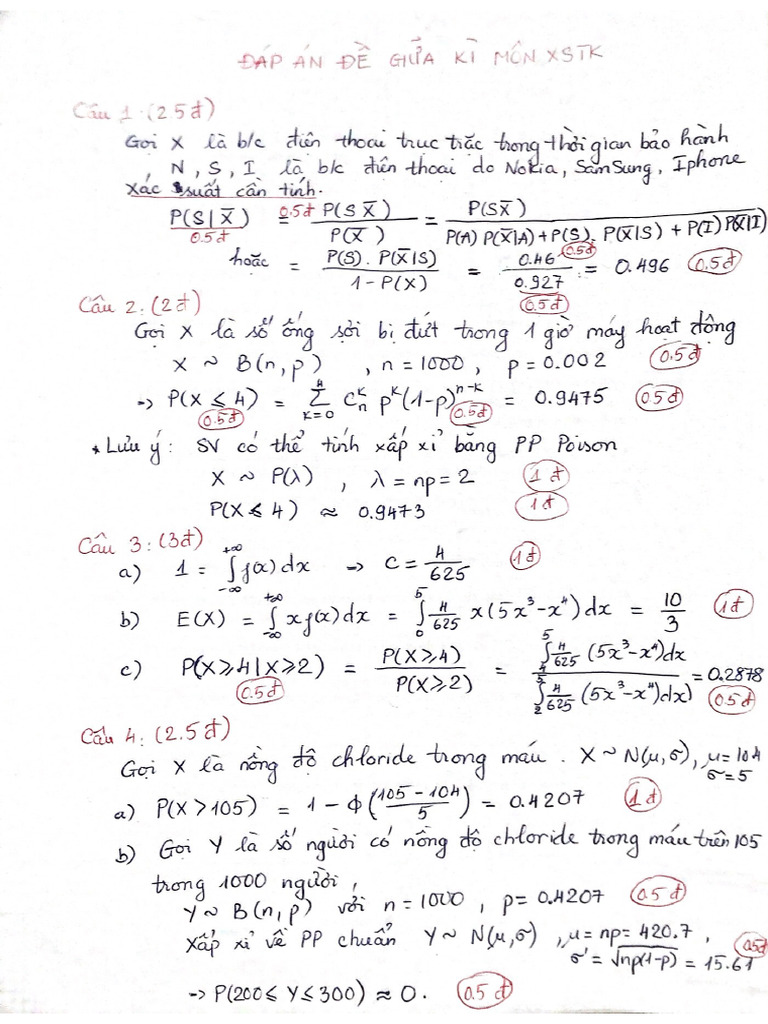 ĐÁP ÁN ĐỀ GIỮA KÌ MÔN XSTK
Câu 1: (2.5đ)
Gọi X là b/c điện thoại trục trặc trong thời gian bảo hành
, N, S, I là b/c điện thoại do Nokia, SamSung, Iphone
Xác suất cần tính.
P(S|X̄) = P(S X̄) / P(X̄) = P(SX̄) / (P(A) P(X̄|A) + P(S). P(X̄|S) + P(I) P(X̄|I)) 0.5đ 0.5đ
hoặc = P(S). P(X̄|S) / (1 - P(X)) = 0.46 / 0.927 = 0.496 0.5đ 0.5đ 0.5đ
Câu 2: (2đ)
Gọi X là số ống sợi bị đứt trong 1 giờ máy hoạt động
X ~ B(n,p) , n = 1000 , p = 0.002 0.5đ
-> P(X ≤ 4) = Σ_{k=0}^{4} C_n^k p^k (1-p)^{n-k} = 0.9475 0.5đ 0.5đ 0.5đ
* Lưu ý: SV có thể tính xấp xỉ bằng PP Poison
X ~ P(λ) , λ = np = 2 1đ
P(X ≤ 4) ≈ 0.9473 1đ
Câu 3: (3đ)
a) 1 = ∫_{-∞}^{+∞} f(x)dx -> C = 4/625 1đ
b) E(X) = ∫_{-∞}^{+∞} x f(x)dx = ∫_0^5 4/625 x(5x³-x⁴)dx = 10/3 1đ
c) P(X≥4|X≥2) = P(X≥4) / P(X≥2) = ∫_4^5 4/625 (5x³-x⁴)dx / ∫_2^5 4/625 (5x³-x⁴)dx) = 0.2878 0.5đ 0.5đ
Câu 4: (2.5đ)
Gọi X là nồng độ chloride trong máu. X ~ N(μ,σ), μ = 104 σ = 5
a) P(X > 105) = 1 - Φ((105 - 104)/5) = 0.4207 1đ
b) Gọi Y là số người có nồng độ chloride trong máu trên 105
trong 1000 người,
Y ~ B(n,p) với n = 1000 , p = 0.4207 0.5đ
Xấp xỉ về PP chuẩn Y ~ N(μ,σ) , μ = np = 420.7 , σ = √np(1-p) = 15.61 0.5đ
-> P(200 ≤ Y ≤ 300) ≈ 0. 0.5đ